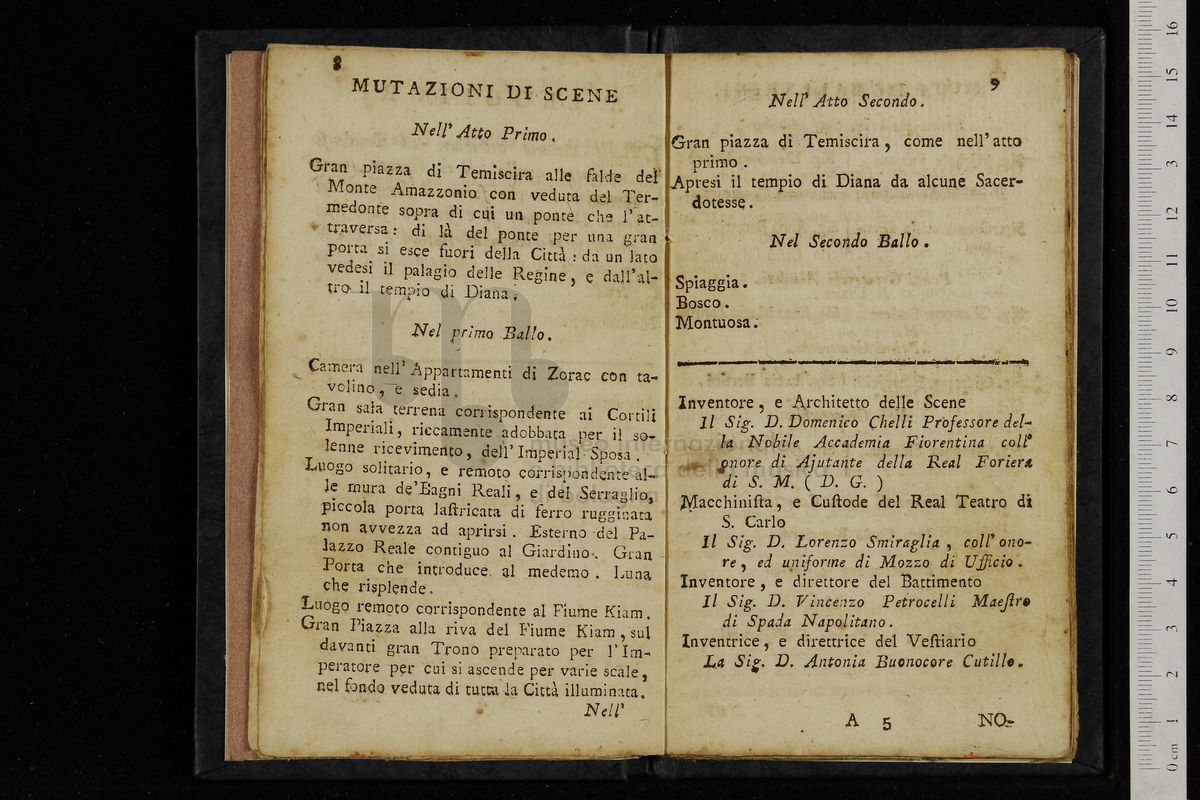 8
MUTAZIONI DI SCENE
Nell' Atto Primo.
Gran piazza di Temiscira alle falde del
Monte Amazzonio con veduta del Ter-
medonte sopra di cui un ponte che l'at-
traversa: di là del ponte per una gran
porta si esce fuori della Città: da un lato
vedesi il palagio delle Regine, e dall'al-
tro il tempio di Diana.
Nel primo Ballo.
Camera nell' Appartamenti di Zorac con ta-
volino, e sedia.
Gran sala terrena corrispondente ai Cortili
Imperiali, riccamente adobbata per il so-
lenne ricevimento, dell' Imperial Sposa.
Luogo solitario, e remoto corrispondente al-
le mura de' Bagni Reali, e del Serraglio,
piccola porta laſtricata di ferro rugginata
non avvezza ad aprirsi. Esterno del Pa-
lazzo Reale contiguo al Giardino. Gran
Porta che introduce al medemo. Luna
che risplende.
Luogo remoto corrispondente al Fiume Kiam.
Gran Piazza alla riva del Fiume Kiam, sul
davanti gran Trono preparato per l'Im-
peratore per cui si ascende per varie scale,
nel fondo veduta di tutta la Città illuminata.
Nell'
9
Nell' Atto Secondo.
Gran piazza di Temiscira, come nell' atto
primo.
Apresi il tempio di Diana da alcune Sacer-
dotesse.
Nel Secondo Ballo.
Spiaggia.
Bosco.
Montuosa.
Inventore, e Architetto delle Scene
Il Sig. D. Domenico Chelli Professore del-
la Nobile Accademia Fiorentina coll'
onore di Ajutante della Real Foriera
di S. M. ( D. G. )
Macchiniſta, e Cuſtode del Real Teatro di
S. Carlo
Il Sig. D. Lorenzo Smiraglia, coll' ono-
re, ed uniforme di Mozzo di Ufficio.
Inventore, e direttore del Battimento
Il Sig. D. Vincenzo Petrocelli Maeſtro
di Spada Napolitano.
Inventrice, e direttrice del Veſtiario
La Sig. D. Antonia Buonocore Cutillo.
A 5 NO-
0 cm 1 2 3 4 5 6 7 8 9 10 11 12 13 14 15 16